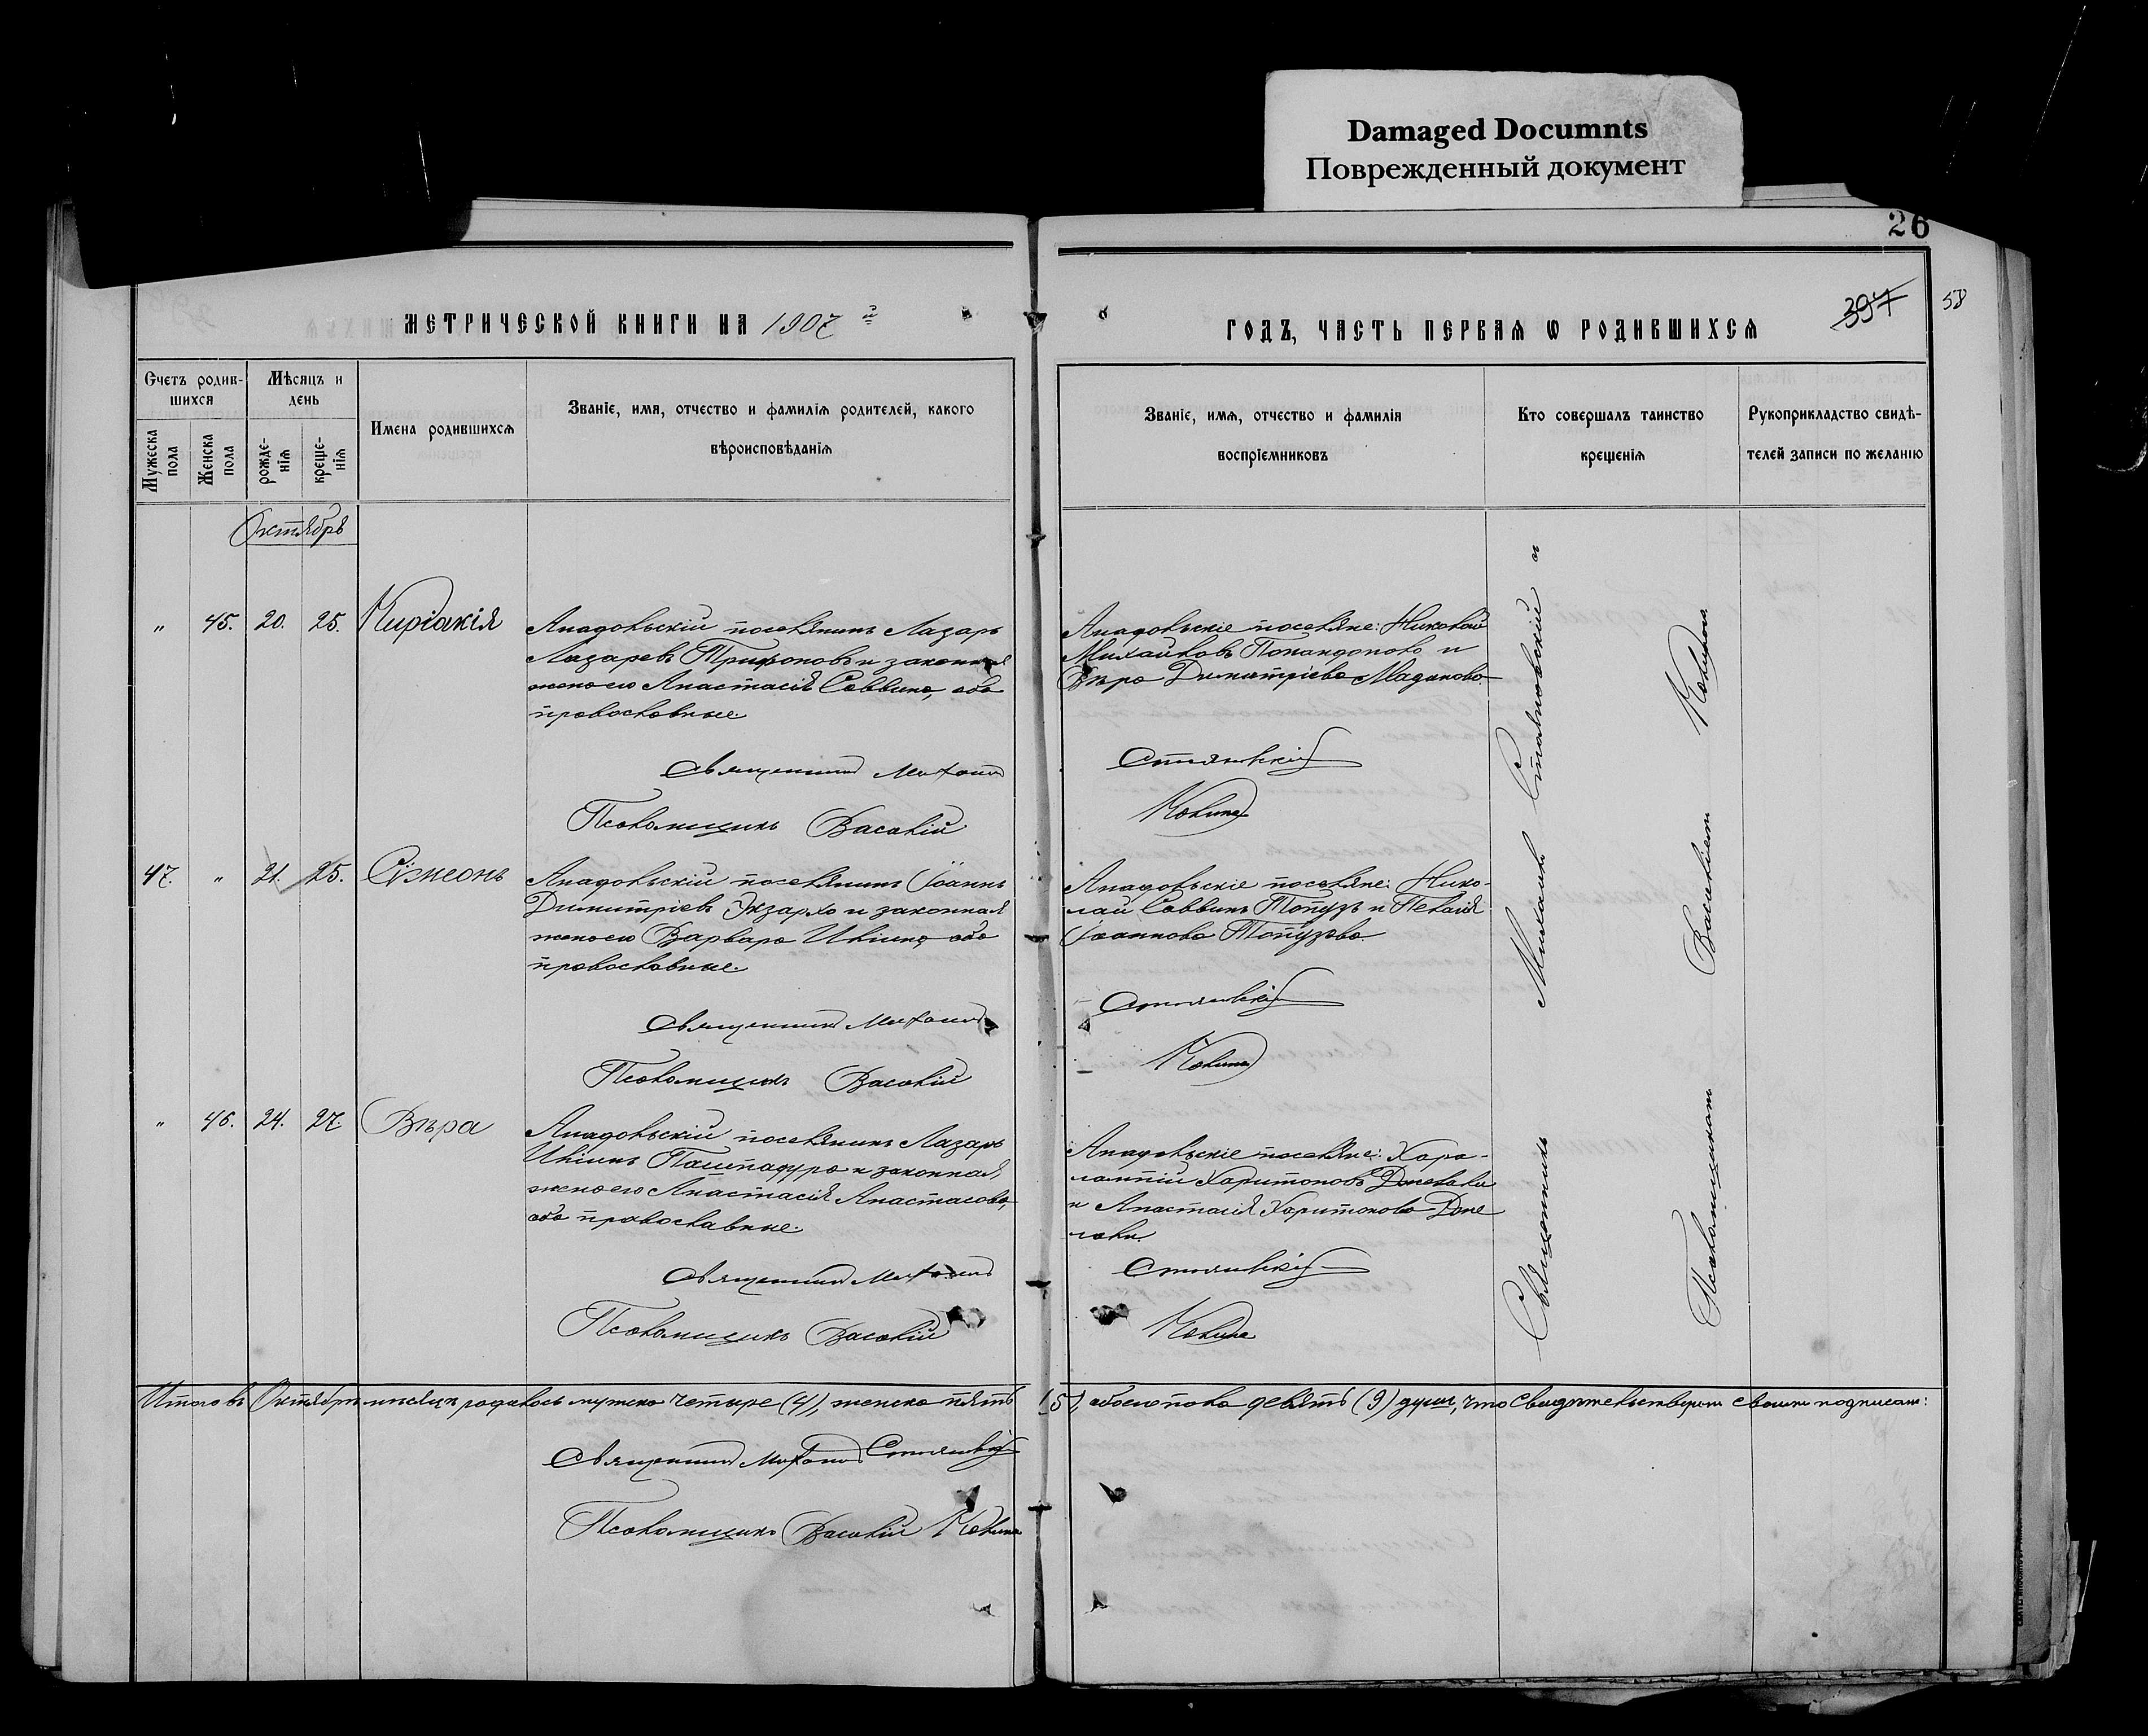 Damaged Documnts
Поврежденный документ
26
МЕТРИЧЕСКОЙ КНИГИ НА 1907 й
ГОДЪ, ЧАСТЬ ПЕРВАЯ Ѡ РОДИВШИХСЯ
397
58
Счетъ родив-
шихся
Мужеска
пола
Женска
пола
Мѣсяцъ и
день
рожде-
нія
креще-
нія
Имена родившихся
Званіе, имя, отчество и фамилія родителей, какого
вѣроисповѣданія
Званіе, имя, отчество и фамилія
воспріємниковъ
Кто совершалъ таинство
крещенія
Рукоприкладство свидѣ-
телей записи по желанію
Октябрь
" 45. 20. 25. Киріакія
Анадольскій поселянинъ Лазарь
Лазаревъ Трифоновъ и законная
жена его Анастасія Саввина, оба
православные.
Священникъ Михаилъ
Псаломщикъ Василій
Анадольскіе поселяне: Николай
Михайловъ Попандопово и
Вѣра Димитріева
Стояновскій
47. " 21. 25. Сѵмеонъ
Анадольскій поселянинъ Іоаннъ
Димитріевъ Экзархо и законная
жена его Варвара Иліина, оба
православные.
Священникъ Михаилъ
Псаломщикъ Василій
Анадольскіе поселяне: Нико-
лай Саввинъ Топузъ и Пелагія
Іоаннова Топузова.
Стояновскій
" 46. 24. 27. Вѣра
Анадольскій поселянинъ Лазарь
Иліинъ и законная
жена его Анастасія Анастасова,
оба православные.
Священникъ Михаилъ
Псаломщикъ Василій
Анадольскіе поселяне: Хара-
лампій Харитоновъ
и Анастасія Харитонова
Стояновскій
Священникъ Михаилъ Стояновскій и
Псаломщикъ Василій
Итого въ Октябрѣ мѣсяцѣ родилось мужска четыре (4), женска пять
(5), обоего пола девять (9) душъ, что свидѣтельствуемъ своими подписами:
Священникъ Михаилъ Стояновскій
Псаломщикъ Василій